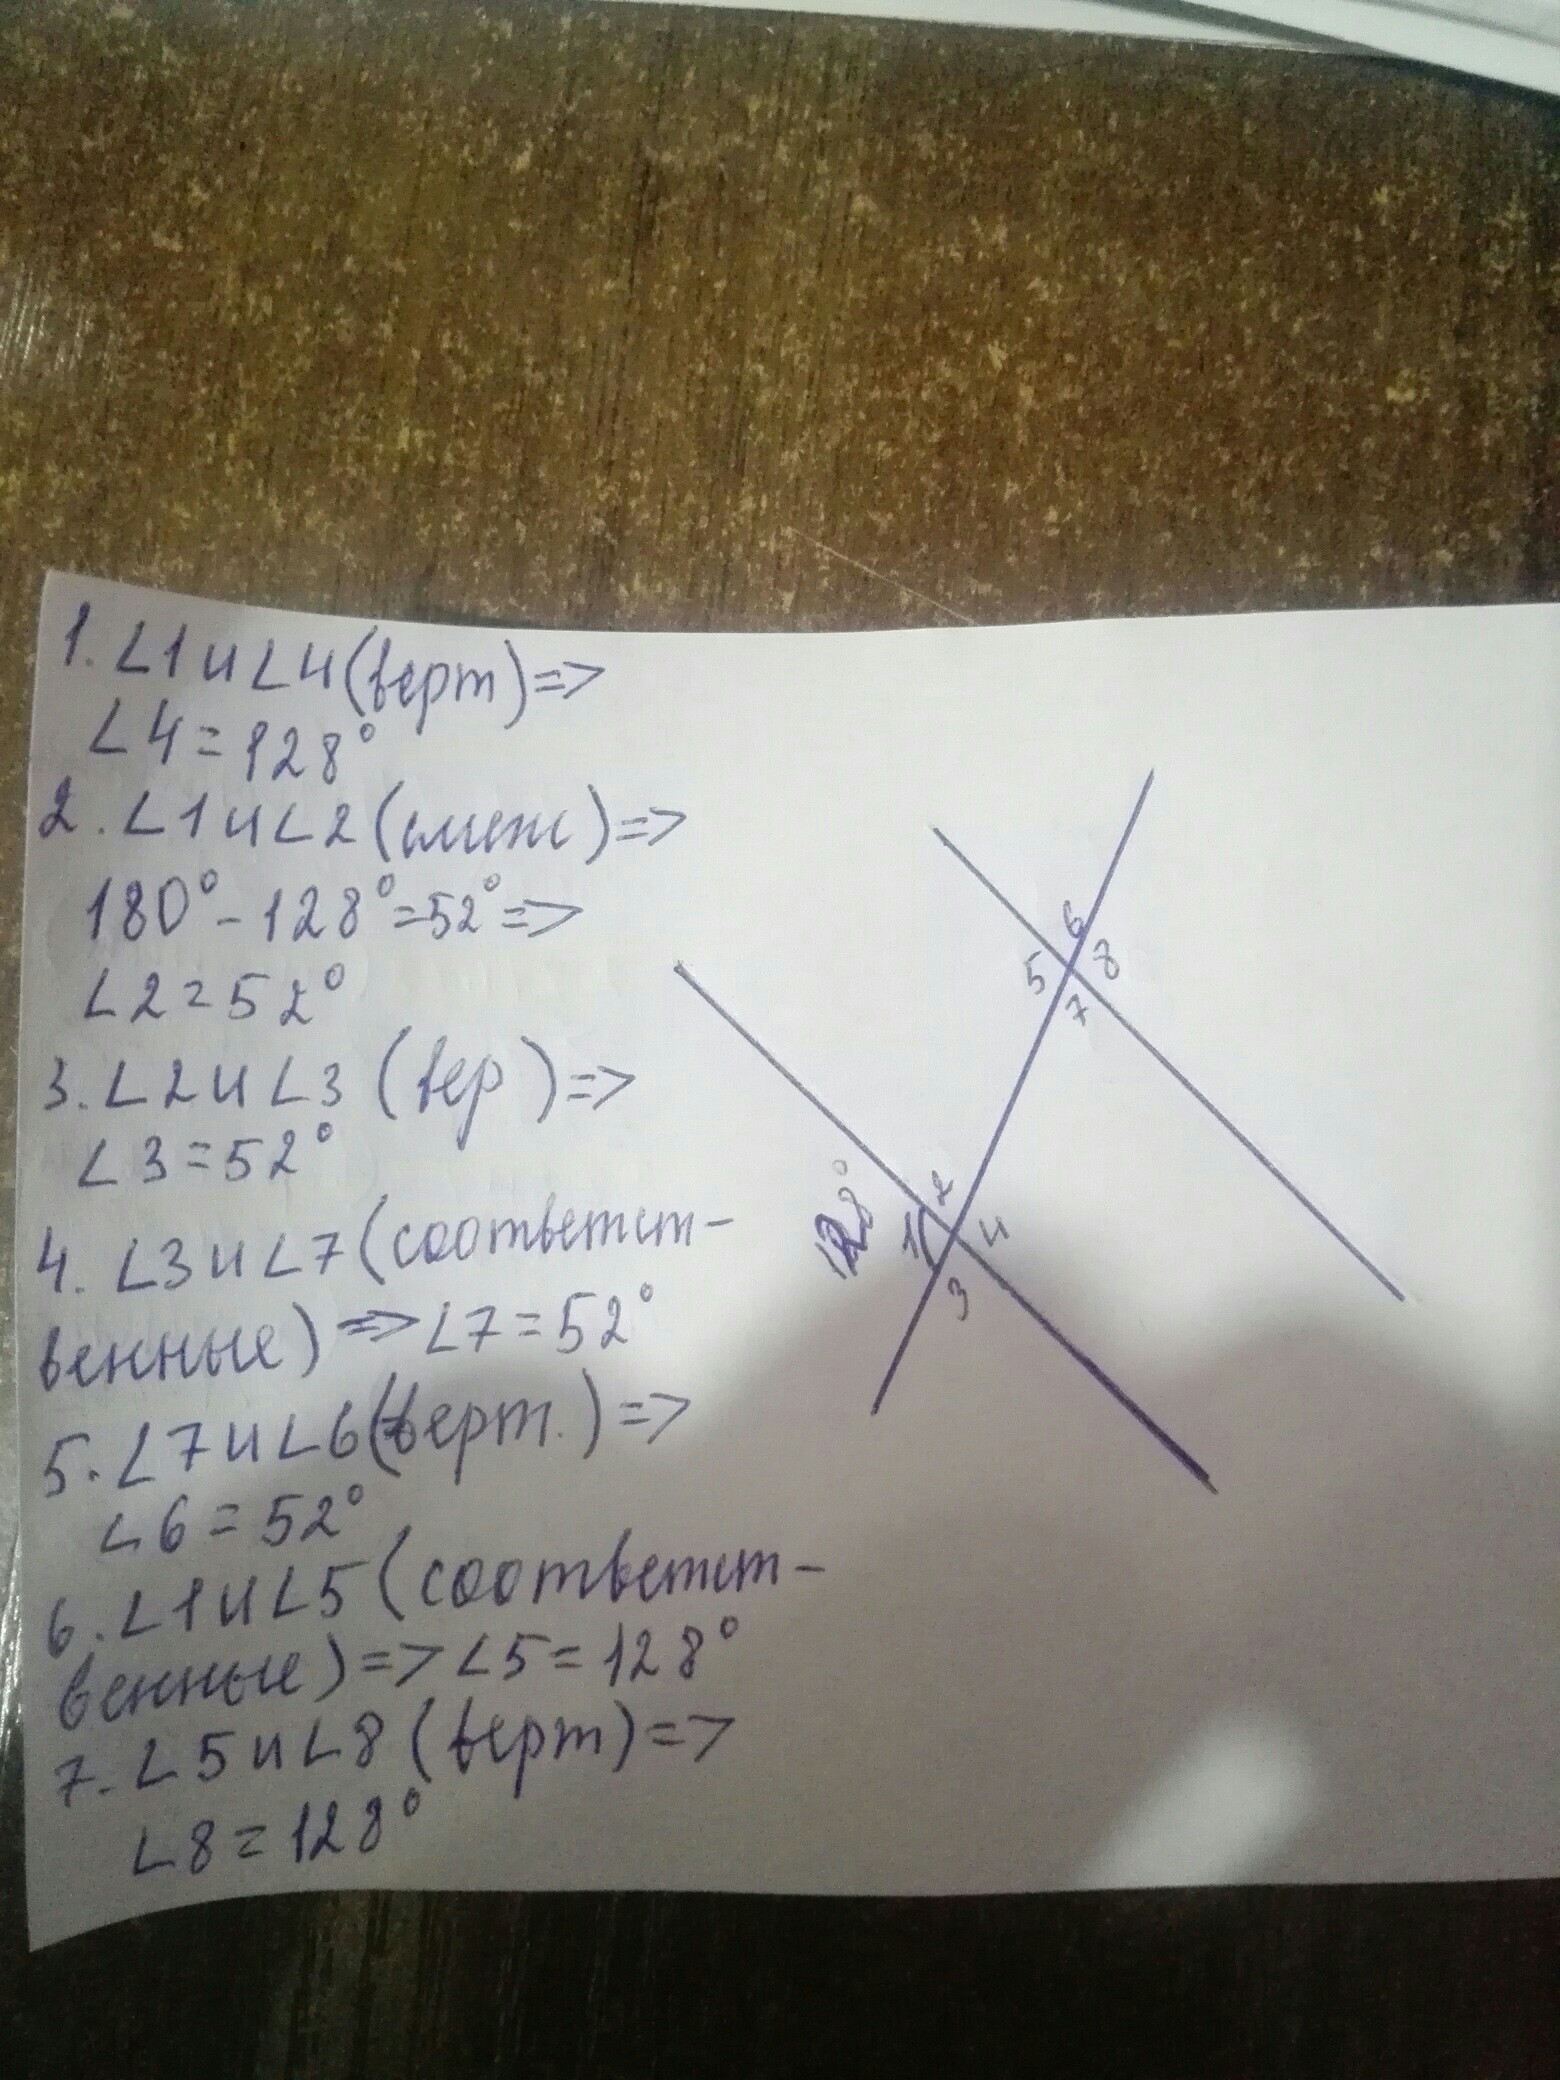 1. ∠1 и ∠4 (верт) =>
∠4 = 128°
2. ∠1 и ∠2 (смеж) =>
180° - 128° = 52° =>
∠2 = 52°
3. ∠2 и ∠3 (вер ) =>
∠3 = 52°
4. ∠3 и ∠7 (соответст-
венные) => ∠7 = 52°
5. ∠7 и ∠6 (верт.) =>
∠6 = 52°
6. ∠1 и ∠5 (соответст-
венные) => ∠5 = 128°
7. ∠5 и ∠8 (верт) =>
∠8 = 128°
6
5 8
7
128°
2
1 4
3